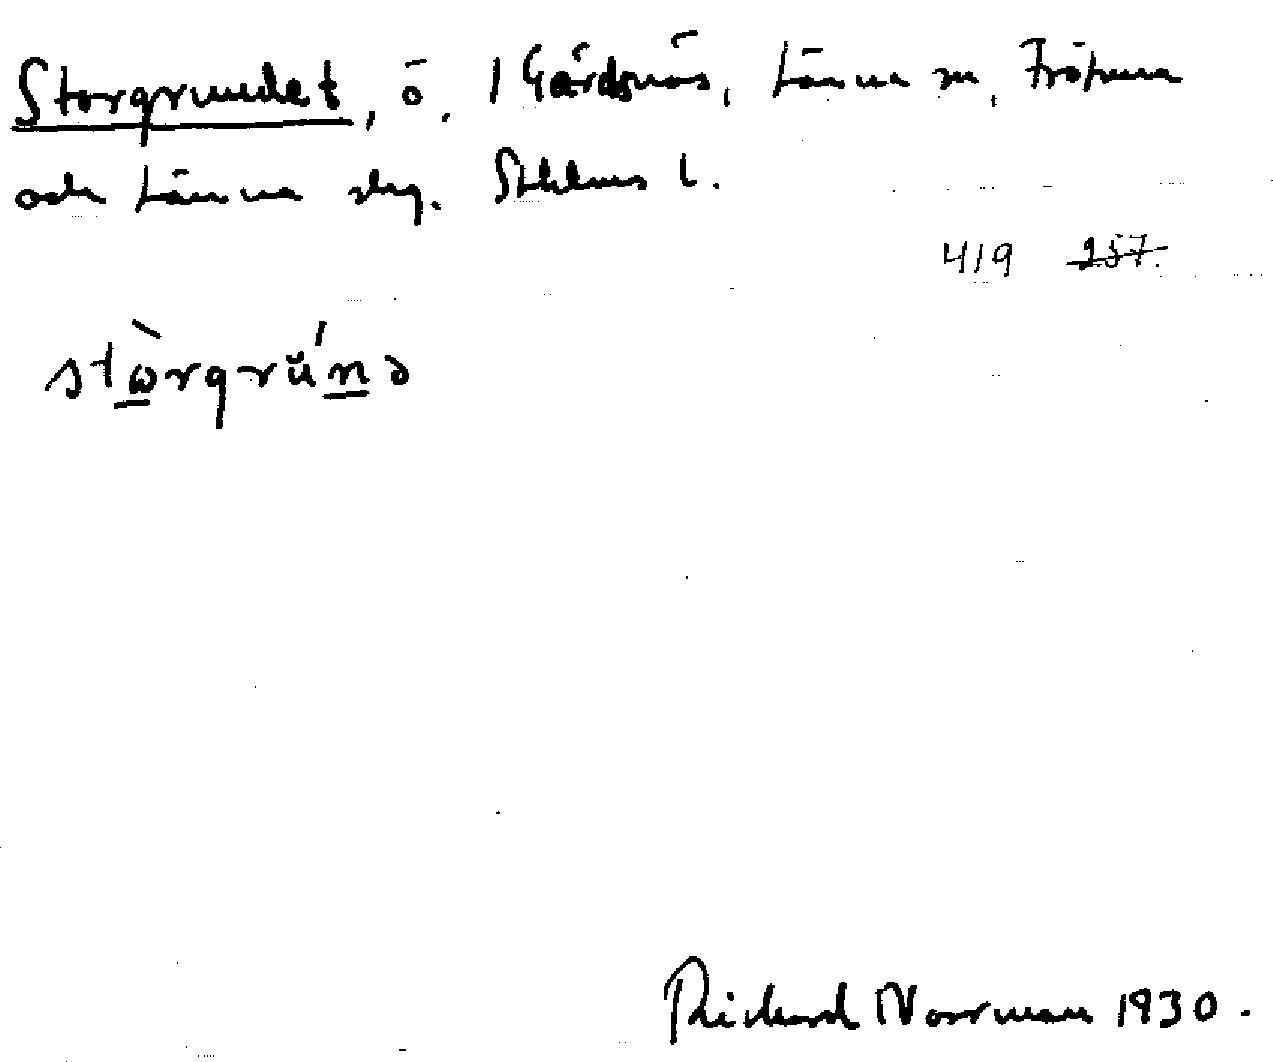 Storgrundet, ö, 1 Gärdsnäs, Länna sn, Frötuna
och Länna skg. Sthlms l.
419 257.
stòrgrŭ́nə
Richard Norrman 1930.